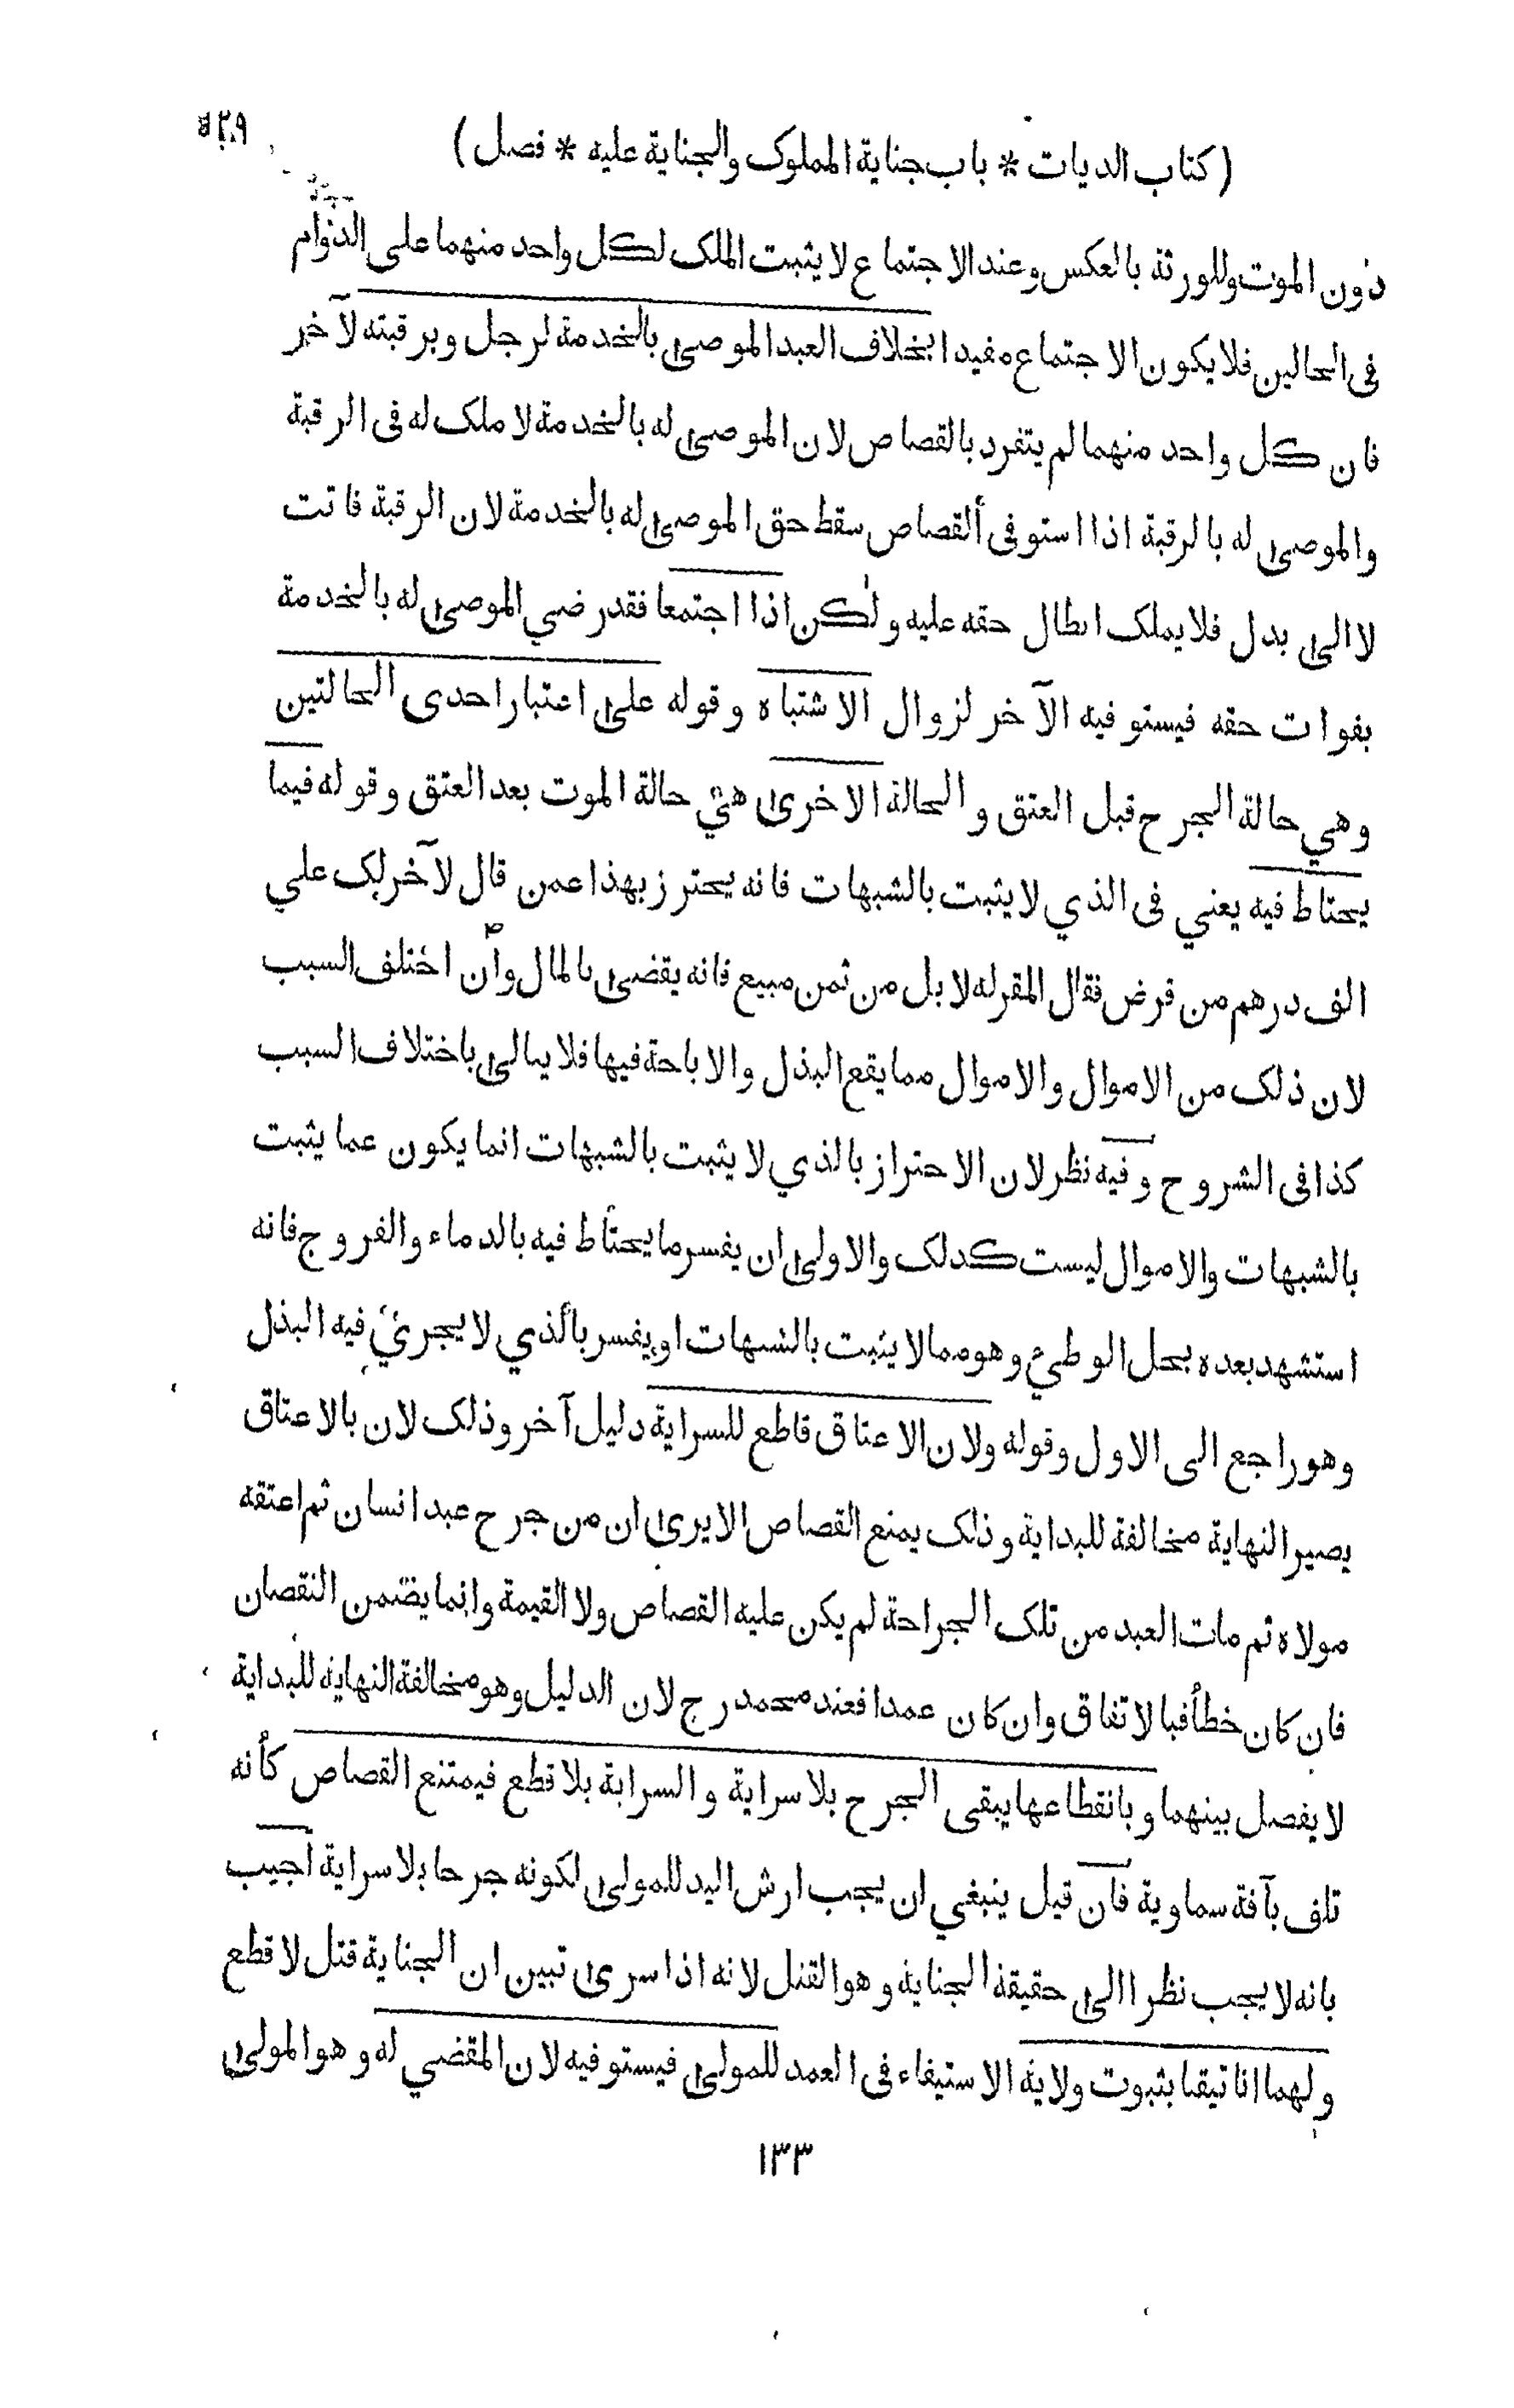 (كتاب الديات * باب جناية المملوك والجناية عليه * فصل)
دون الموت وللورثة بالعكس وعند الاجتماع لا يثبت الملك لكل واحد منهما على الدوام
فى الحالين فلا يكون الاجتماع مفيدا بخلاف العبد الموصى بالخدمة لرجل وبرقبته لآخر
فان كل واحد منهما لم يتفرد بالقصاص لان الموصى له بالخدمة لا ملك له فى الرقبة
والموصى له بالرقبة اذا استوفى القصاص سقط حق الموصى له بالخدمة لان الرقبة فاتت
لا الى بدل فلا يملك ابطال حقه عليه ولكن اذا اجتمعا فقد رضي الموصى له بالخدمة
بفوات حقه فيستوفيه الآخر لزوال الاشتباه وقوله على اعتبار احدى الحالتين
وهي حالة الجرح قبل العتق والحالة الاخرى هي حالة الموت بعد العتق وقوله فيما
يحتاط فيه يعني فى الذي لا يثبت بالشبهات فانه يحترز بهذا عمن قال لآخر لك علي
الف درهم من قرض فقال المقر له لا بل من ثمن مبيع فانه يقضى بالمال وان اختلف السبب
لان ذلك من الاموال والاموال مما يقع البذل والاباحة فيها فلا يبالى باختلاف السبب
كذا فى الشروح وفيه نظر لان الاحتراز بالذي لا يثبت بالشبهات انما يكون عما يثبت
بالشبهات والاموال ليست كذلك والاولى ان يفسر ما يحتاط فيه بالدماء والفروج فانه
استشهد بعده بحل الوطيء وهو مما لا يثبت بالشبهات او يفسر بالذي لا يجري فيه البذل
وهو راجع الى الاول وقوله ولان الاعتاق قاطع للسراية دليل آخر وذلك لان بالاعتاق
يصير النهاية مخالفة للبداية وذلك يمنع القصاص الا يرى ان من جرح عبد انسان ثم اعتقه
مولاه ثم مات العبد من تلك الجراحة لم يكن عليه القصاص ولا القيمة وانما يضمن النقصان
فان كان خطأ فبالاتفاق وان كان عمدا فعند محمد رح لان الدليل وهو مخالفة النهاية للبداية
لا يفصل بينهما وبانقطاعها يبقى الجرح بلا سراية والسراية بلا قطع فيمتنع القصاص كأنه
تلف بآفة سماوية فان قيل ينبغي ان يجب ارش اليد للمولى لكونه جرحا بلا سراية اجيب
بانه لا يجب نظرا الى حقيقة الجناية وهو القتل لانه اذا سرى تبين ان الجناية قتل لا قطع
ولهما انا تيقنا بثبوت ولاية الاستيفاء فى العمد للمولى فيستوفيه لان المقضي له وهو المولى
١٣٣